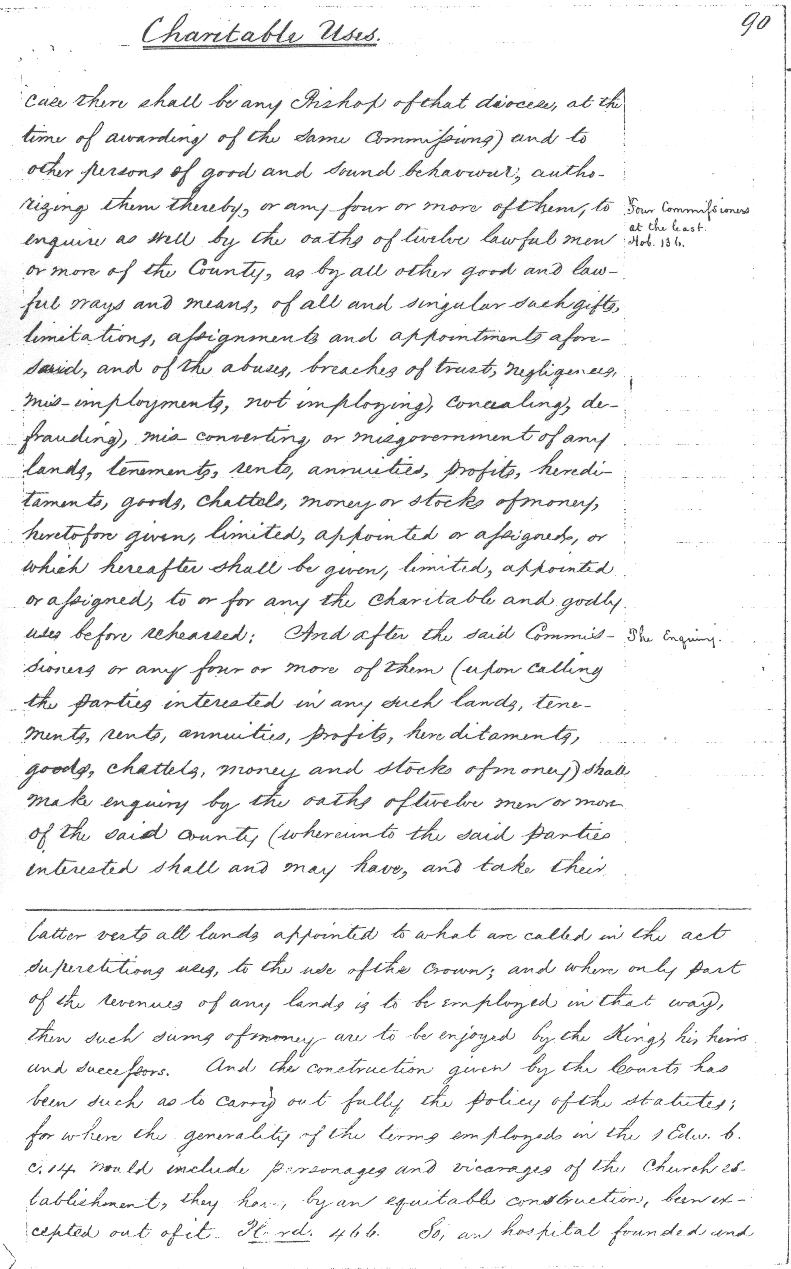 90
Charitable Uses.
case there shall be any Bishop of that diocese, at the
time of awarding of the same Commissions) and to
other persons of good and sound behaviour; autho-
rizing them thereby, or any four or more of them, to
Four Commissioners
at the least.
Hob. 136.
enquire as well by the oaths of twelve lawful men
or more of the County, as by all other good and law-
ful ways and means, of all and singular such gifts,
limitations, assignments and appointments afore-
said, and of the abuses, breaches of trust, negligences,
mis-imployments, not imploying, concealing, de-
frauding, mis converting or misgovernment of any
lands, tenements, rents, annuities, profits, heredi-
taments, goods, chattels, money or stocks of money,
heretofore given, limited, appointed or assigned, or
which hereafter shall be given, limited, appointed
or assigned, to or for any the charitable and godly
uses before rehearsed: And after the said Commis-
The Enquiry.
sioners or any four or more of them (upon calling
the parties interested in any such lands, tene-
ments, rents, annuities, profits, hereditaments,
goods, chattels, money and stocks of money) shall
make enquiry by the oaths of twelve men or more
of the said county (whereunto the said parties
interested shall and may have, and take their
latter vests all lands appointed to what are called in the act
superstitious uses, to the use of the crown; and where only part
of the revenues of any lands is to be employed in that way,
then such sums of money are to be enjoyed by the King, his heirs
and successors. And the construction given by the Courts has
been such as to carry out fully the policy of the statutes;
for where the generality of the terms employed in the 1 Edw. 6.
c. 14 would include parsonages and vicarages of the Church es-
tablishment, they have, by an equitable construction, been ex-
cepted out of it. 466. So, an hospital founded and